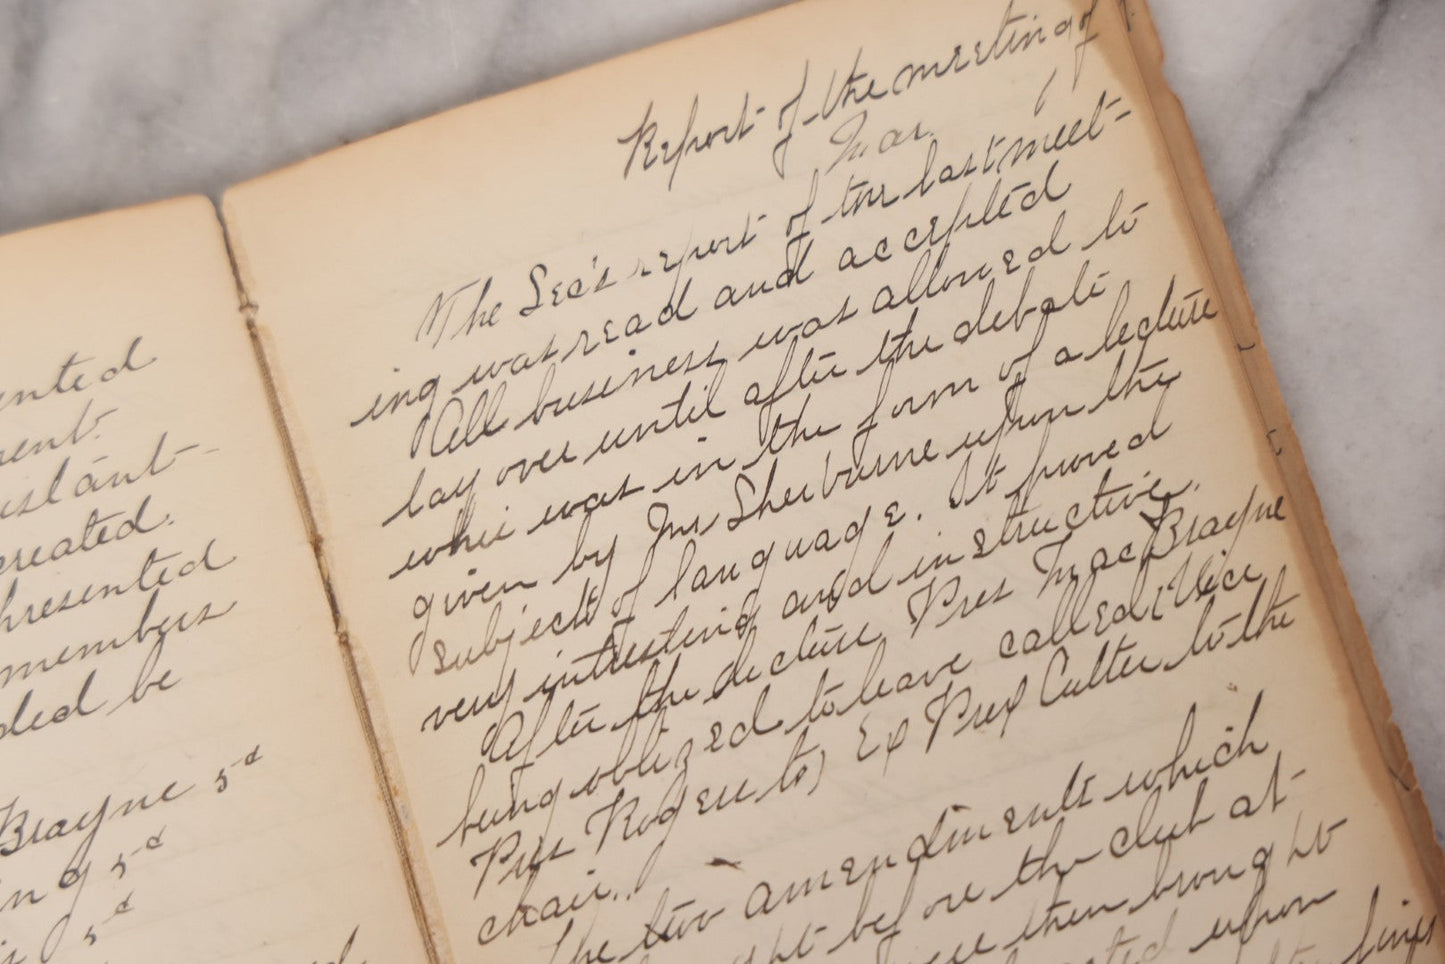 ented
ment.
istant-
created.
presented
members
ded be
Brayne 5d
ing 5d
5d
Report of the meeting of
Mar.
The Sec's report of the last meet-
ing was read and accepted
All business was allowed to
lay over until after the debate
whic was in the form of a lecture
given by Mr Sherburne upon the
subject of language. It proved
very intresting and instructive.
After the lecture Pres MacBrayne
being oblized to leave called Vice
Pres Rogers to, Ex Pres Cutter to the
chair.
The two amendments which
before the club at
were then brought
upon